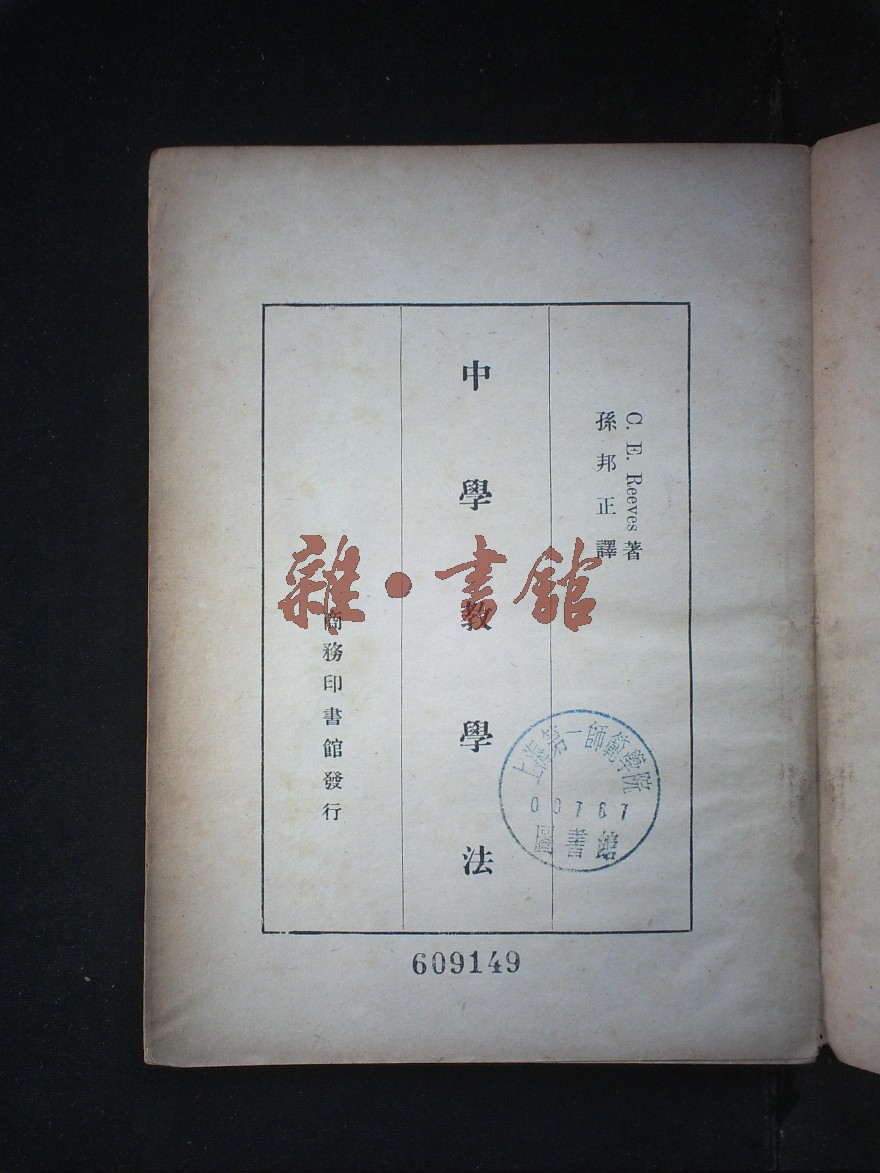 C. E. Reeves 著
孫邦正譯
中學教學法
商務印書館發行
雜·書館
上海第一師範學院
圖書館
609149